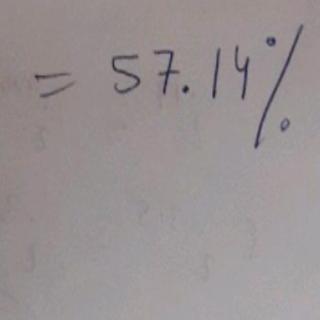 = 57.14%